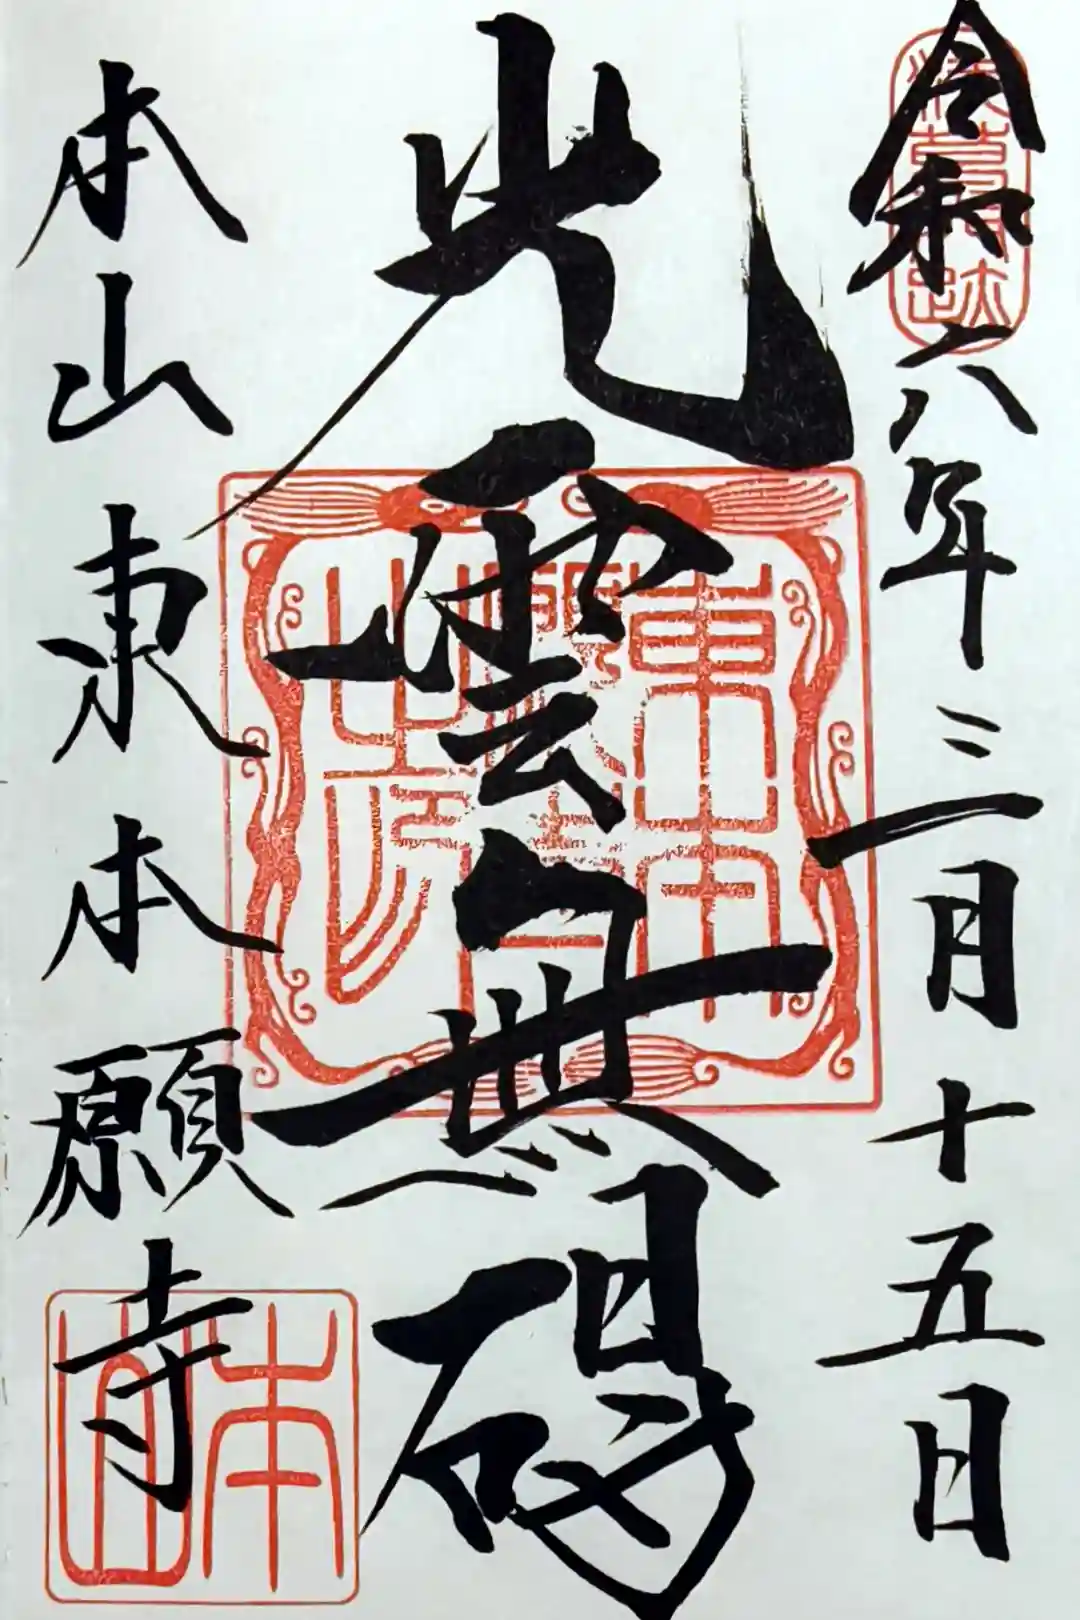 令和六年三月十五日
光雲無碍
本山東本願寺
本山